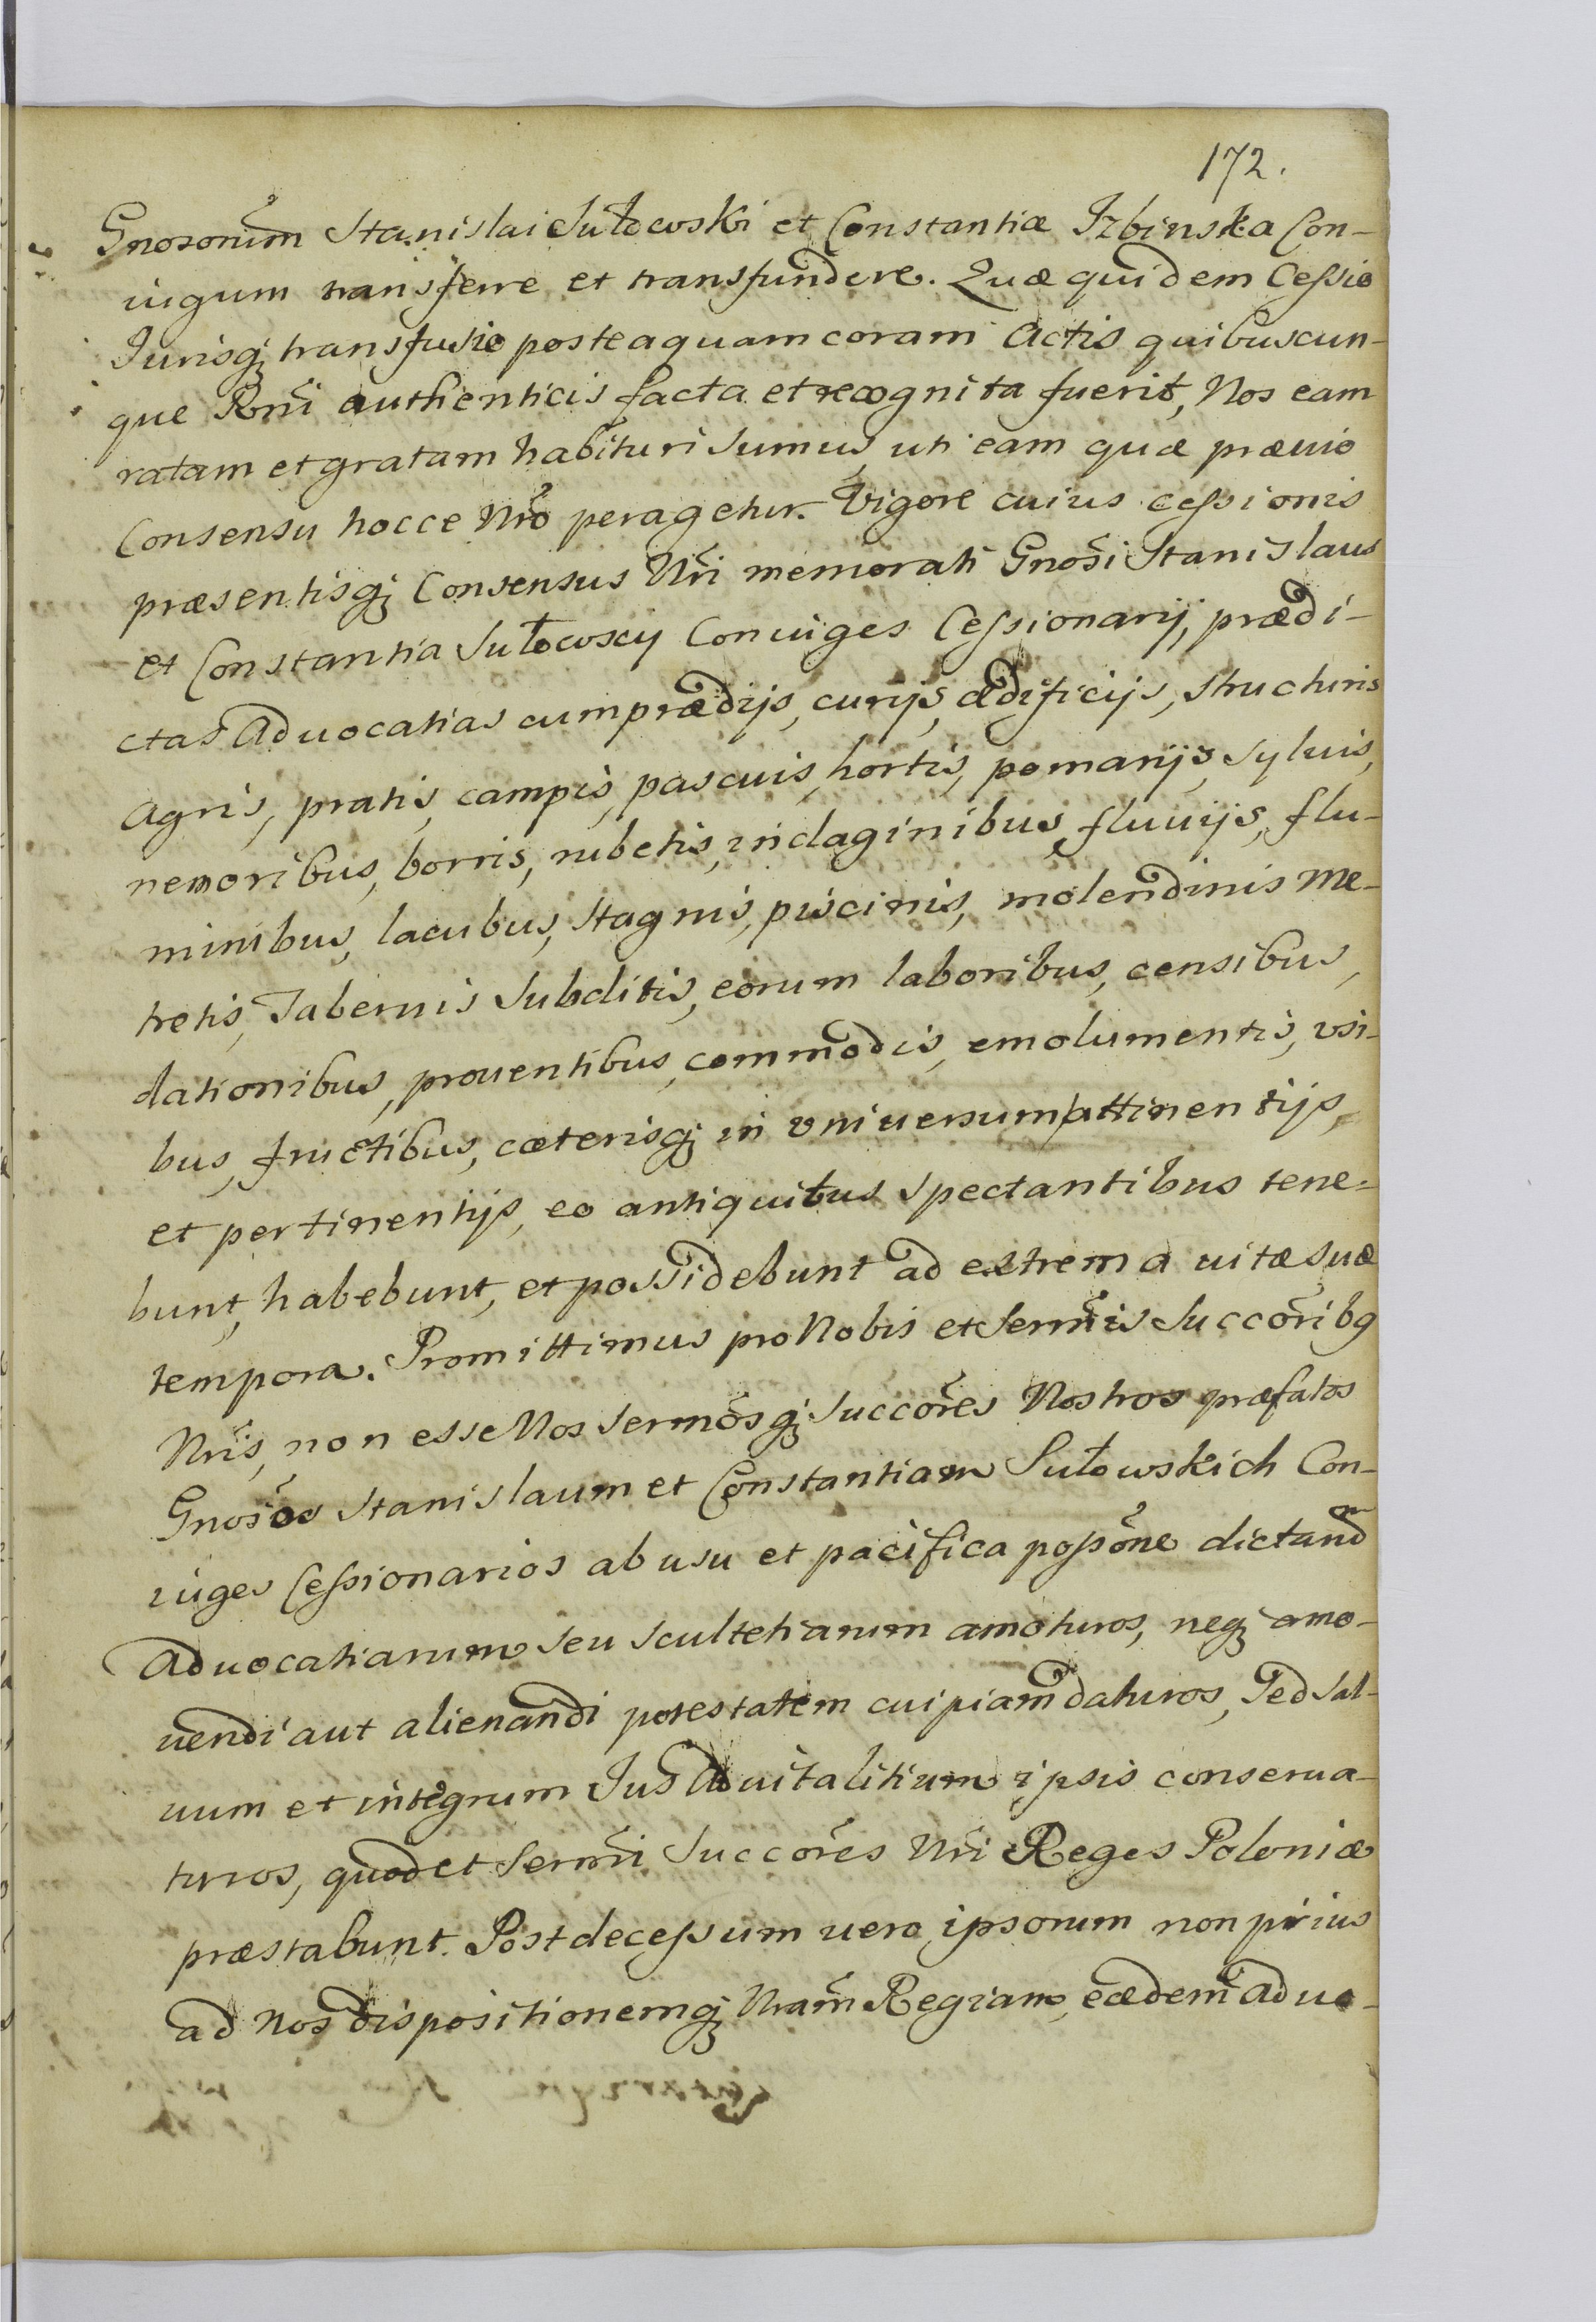 172.
Gnosorum̃ Stanislai Sułowski et Constantiæ Izbinska Con-
iugum transferre et transfundere. Quæ quidem Cessio
Jurisqꝫ transfusio posteaquam coram Actis quibuscun-
que Rñi authenticis facta et recognita fuerit, Nos eam
ratam et gratam habituri sumus, uti eam quæ præuio
Consensu hocce Nrõ peragetur. Vigore cuius cessionis
præsentisqꝫ Consensus Nrĩ memorati Gnosĩ Stanislaus
et Constantia Sułowscy Coniuges Cessionarij, prædi-
ctas Aduocatias cum prædijs, curijs, ædificijs, structuris
agris, pratis, campis, pascuis, hortis, pomarijs, syluis,
nemoribus, borris, rubetis, indaginibus, fluuijs, flu-
minibus, lacubus, stagnis, piscinis, molendinis me-
tretis, Tabernis Subditis, eorum laboribus, censibus,
dationibus, prouentibus, commodis, emolumentis, vsi-
bus, fructibus, cæterisqꝫ in vniuersum attinentijs,
et pertinentijs, eo antiquitus spectantibus tene-
bunt, habebunt, et possidebunt ad extrema uitæ suæ
tempora. Promittimus pro Nobis et Sermĩs Succorĩbꝯ
Nrĩs, non esse Nos Sermõsqꝫ Succorẽs Nostros præfatos
Gnosõs Stanislaum et Constantiam Sułowskich Con-
iuges Cessionarios ab usu et pacifica possõne dictand̃
Aduocatiarum seu Scultetiarum amoturos, neqꝫ amo-
uendi aut alienandi potestatem cuipiam daturos, Sed Sal-
uum et integrum Jus Aduitalitium ipsis conserua-
turos, quod et Sermĩ Succorẽs Nrĩ Reges Poloniæ
præstabunt. Post decessum vero ipsorum non prius
ad Nos dispositionemqꝫ Nram̃ Regiam, eædem Aduo-